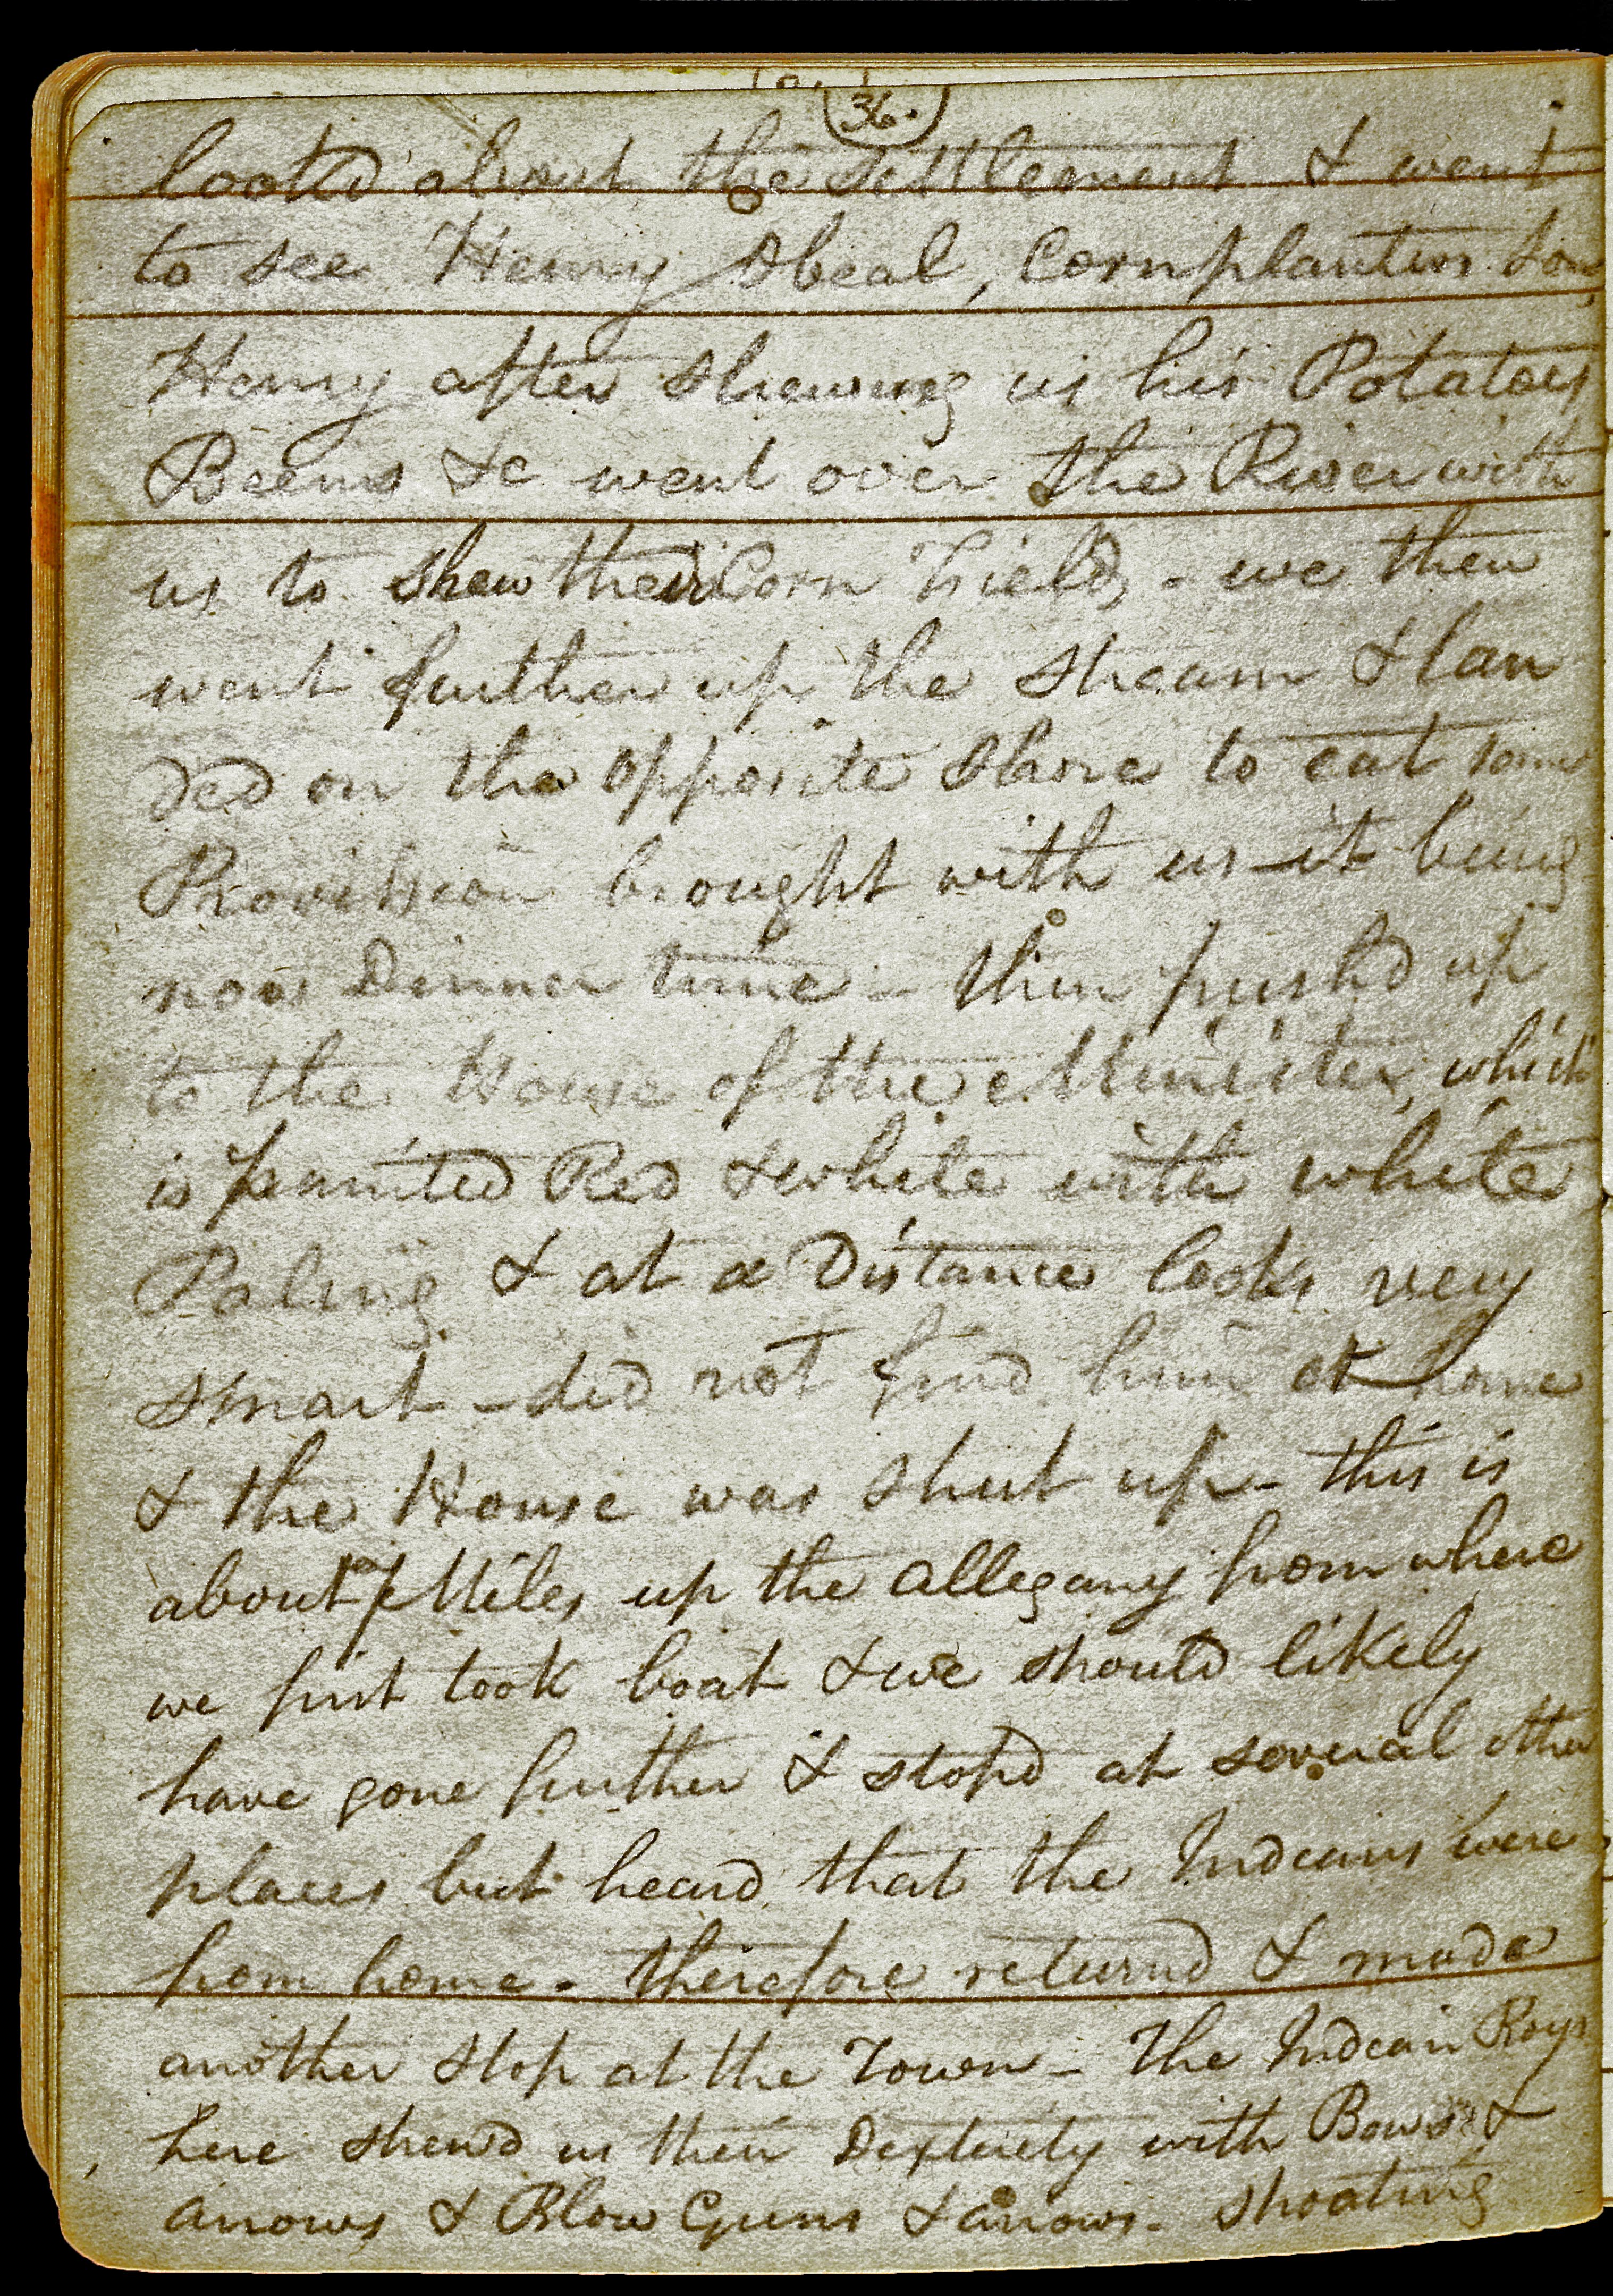 36.
lookd about the settlement & went
to see Henry Obeal, Cornplanters Son
Henry after shewing us his Potatoes
Beens &c went over the River with
us to shew their Corn Field, - we then
went further up the stream & lan
ded on the opposite shore to eat some
Provission brought with us - it being
now Dinner time - then push'd up
to the House of the Minister, which
is painted Red & white with white
Paling & at a Distance looks very
smart - did not find him at home
& the House was shut up - this is
about 7 Miles up the Allegany from where
we first took boat & we should likely
have gone further & stopd at several other
places but heard that the Indians were
from home - therefore returnd & made
another stop at the Town - The Indian Boys
here shewd us their Dexterity with Bows &
arrows & Blow Guns & arrows - shooting